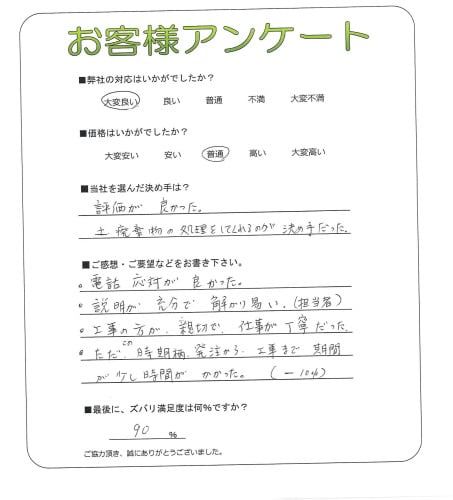 お客様アンケート
■弊社の対応はいかがでしたか？
大変良い 良い 普通 不満 大変不満
■価格はいかがでしたか？
大変安い 安い 普通 高い 大変高い
■当社を選んだ決め手は？
評価が良かった。
土、廃棄物の処理をしてくれるのが決め手だった。
■ご感想・ご要望などをお書き下さい。
○電話応対が良かった。
○説明が充分で解かり易い。（担当者）
○工事の方が、親切で、仕事が丁寧だった。
○ただ、この時期柄、発注から、工事まで期間
が少し時間がかかった。（－10%）
■最後に、ズバリ満足度は何%ですか？
90 %
ご協力頂き、誠にありがとうございました。